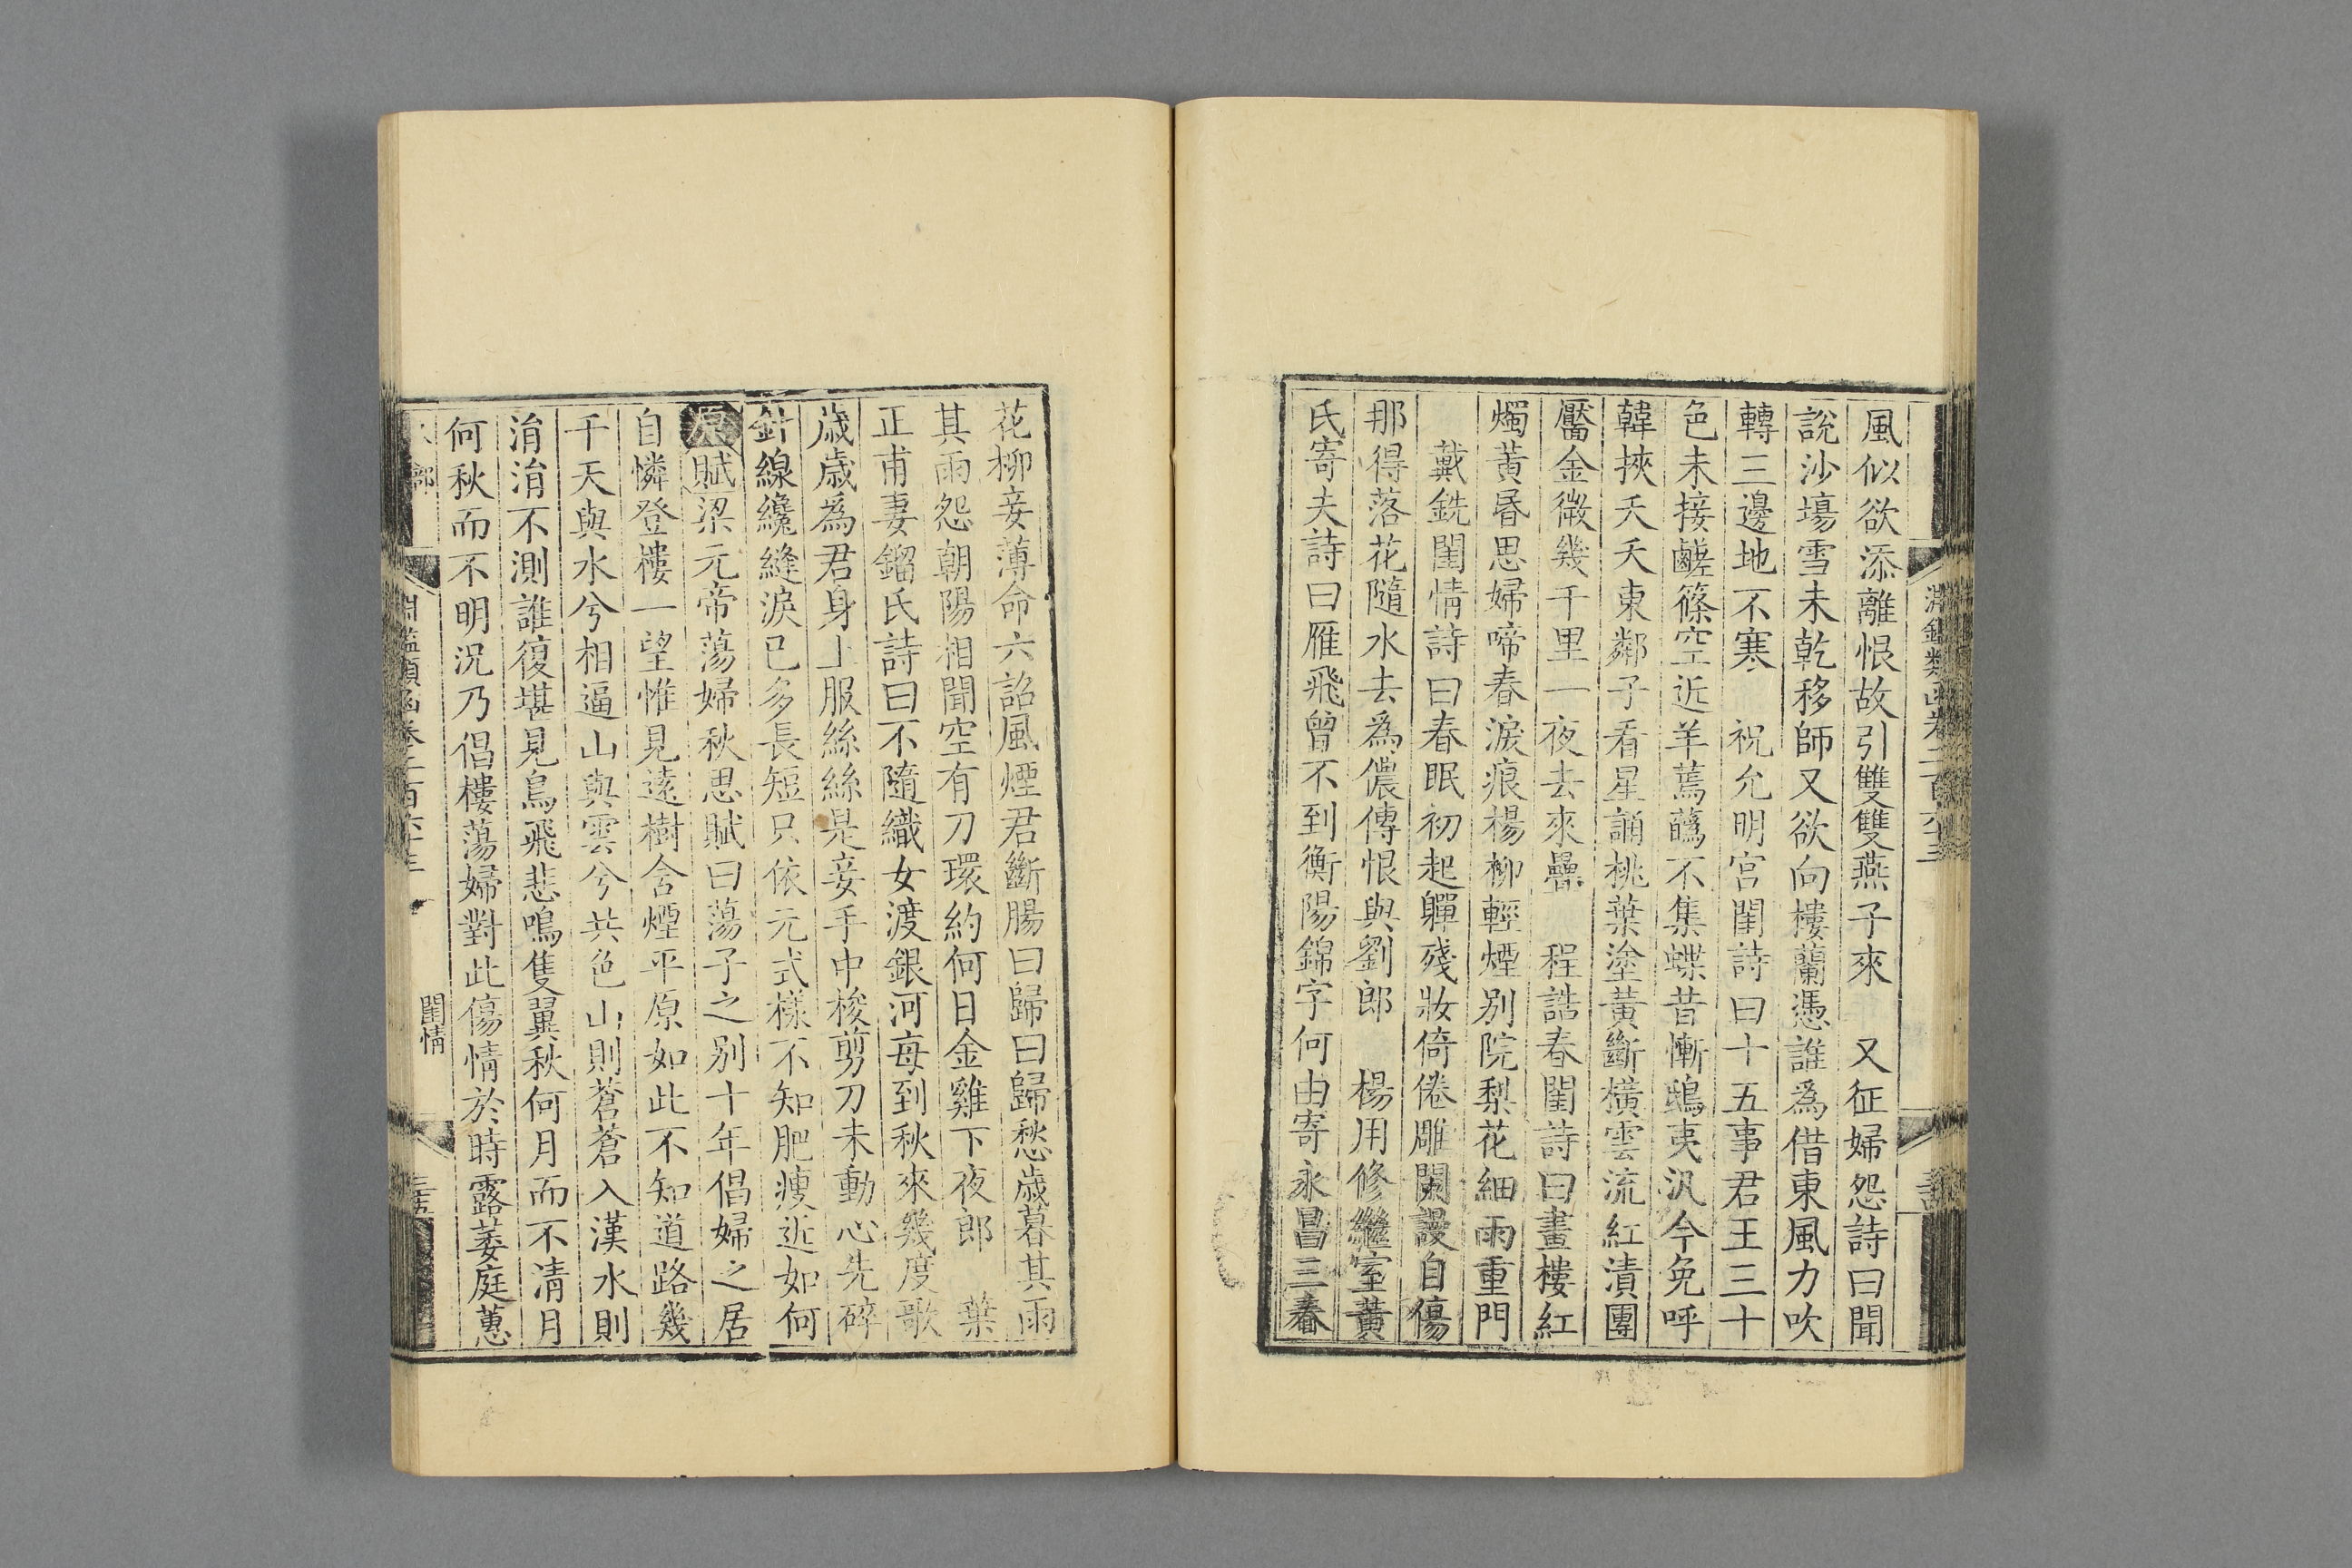 風似欲添離恨故引雙雙燕子來　又征婦怨詩曰聞
說沙塲雪未乾移師又欲向樓蘭憑誰爲借東風力吹
轉三邊地不寒　祝允明宮閨詩曰十五事君王三十
色未接鹺篠空近羊蔫蘤不集蝶昔慚鴟夷汎今免呼
韓挾夭夭東鄰子看星誦桃葉塗黃斷橫雲流紅漬團
靨金微幾千里一夜去來疊　程誥春閨詩曰畫樓紅
燭黃昬思婦啼春淚痕楊柳輕煙别院梨花細雨重門
戴銑閨情詩曰春眠初起嚲殘妝倚倦雕闌謾自傷
那得落花隨水去爲儂傳恨與劉郎　楊用修繼室黃
氏寄夫詩曰雁飛曾不到衡陽錦字何由寄永昌三春
花柳妾薄命六詔風煙君斷腸曰歸曰歸愁歲暮其雨
其雨怨朝陽相聞空有刀環約何日金雞下夜郎　葉
正甫妻鎦氏詩曰不隨織女渡銀河每到秋來幾度歌
歲歲爲君身上服絲絲是妾手中梭剪刀未動心先碎
針線纔縫淚已多長短只依元式樣不知肥瘦近如何
原賦梁元帝蕩婦秋思賦曰蕩子之别十年倡婦之居
自憐登樓一望惟見遠樹含煙平原如此不知道路幾
千天與水兮相逼山與雲兮共色山則蒼蒼入漢水則
涓涓不測誰復堪見鳥飛悲鳴隻翼秋何月而不清月
何秋而不明況乃倡樓蕩婦對此傷情於時露萎庭蕙
淵鑑類函卷二百六十三
閨情
三五